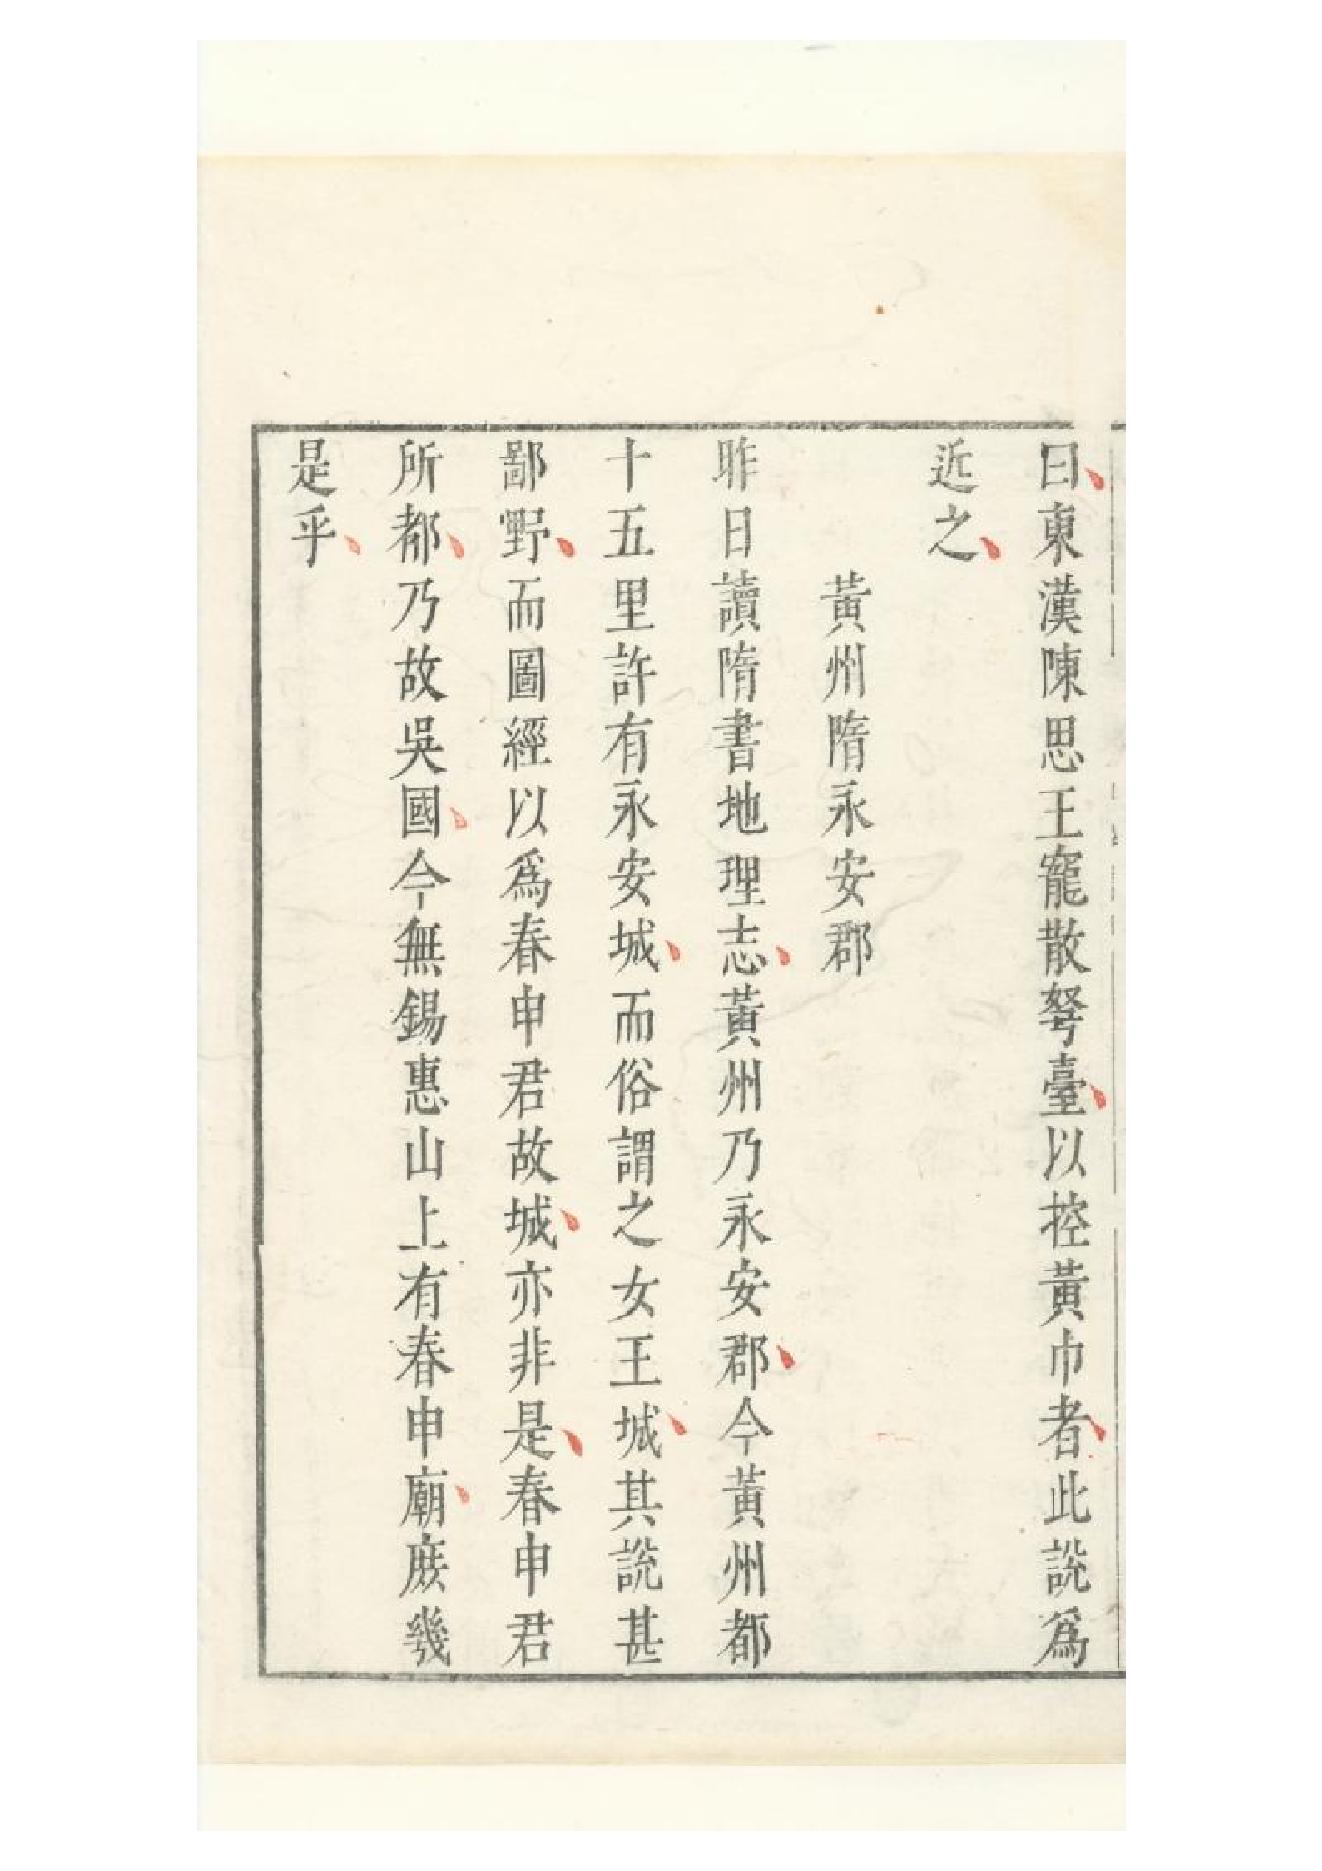 曰東漢陳思王寵散弩臺以控黃巾者此說爲
近之
黃州隋永安郡
昨日讀隋書地理志黃州乃永安郡今黃州都
十五里許有永安城而俗謂之女王城其說甚
鄙野而圖經以爲春申君故城亦非是春申君
所都乃故吳國今無錫惠山上有春申廟庶幾
是乎